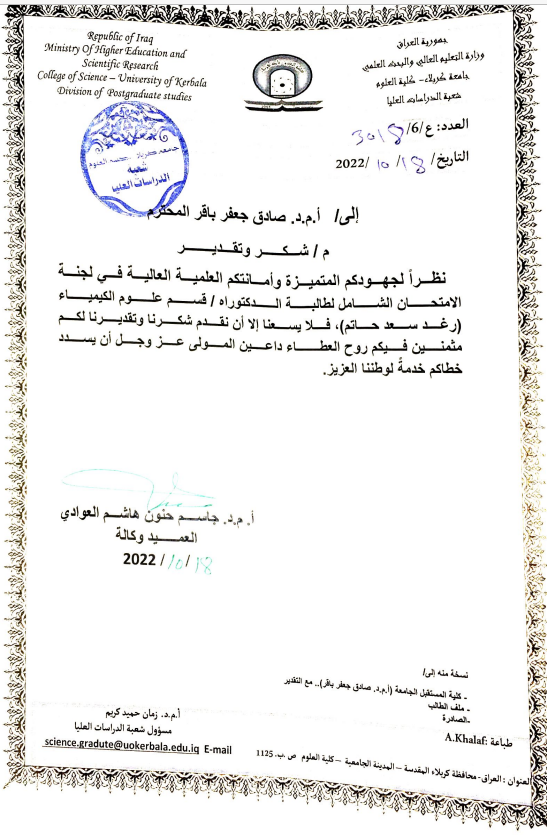 Republic of Iraq
Ministry Of Higher Education and
Scientific Research
College of Science – University of Kerbala
Division of Postgraduate studies
جمهورية العراق
وزارة التعليم العالي والبحث العلمي
جامعة كربلاء- كلية العلوم
شعبة الدراسات العليا
شعبة
الدراسات العليا
العدد: ع/6/3018
التاريخ/ 18/ 10 /2022
إلى/ أ.م.د. صادق جعفر باقر المحترم
م / شكر وتقدير
نظراً لجهودكم المتميزة وأمانتكم العلمية العالية في لجنة
الامتحان الشامل لطالبة الدكتوراه / قسم علوم الكيمياء
(رغد سعد حاتم)، فلا يسعنا إلا أن نقدم شكرنا وتقديرنا لكم
مثمنين فيكم روح العطاء داعين المولى عز وجل أن يسدد
خطاكم خدمةً لوطننا العزيز.
أ. م.د. جاسم حنون هاشم العوادي
العميد وكالة
18/ 10/ 2022
نسخة منه إلى/
- كلية المستقبل الجامعة (أ.م.د. صادق جعفر باقر).. مع التقدير
- ملف الطالب
-الصادرة
طباعة :A.Khalaf
أ.م.د. زمان حميد كريم
مسؤول شعبة الدراسات العليا
science.gradute@uokerbala.edu.iq E-mail
العنوان : العراق-محافظة كربلاء المقدسة – المدينة الجامعية – كلية العلوم ص .ب. 1125